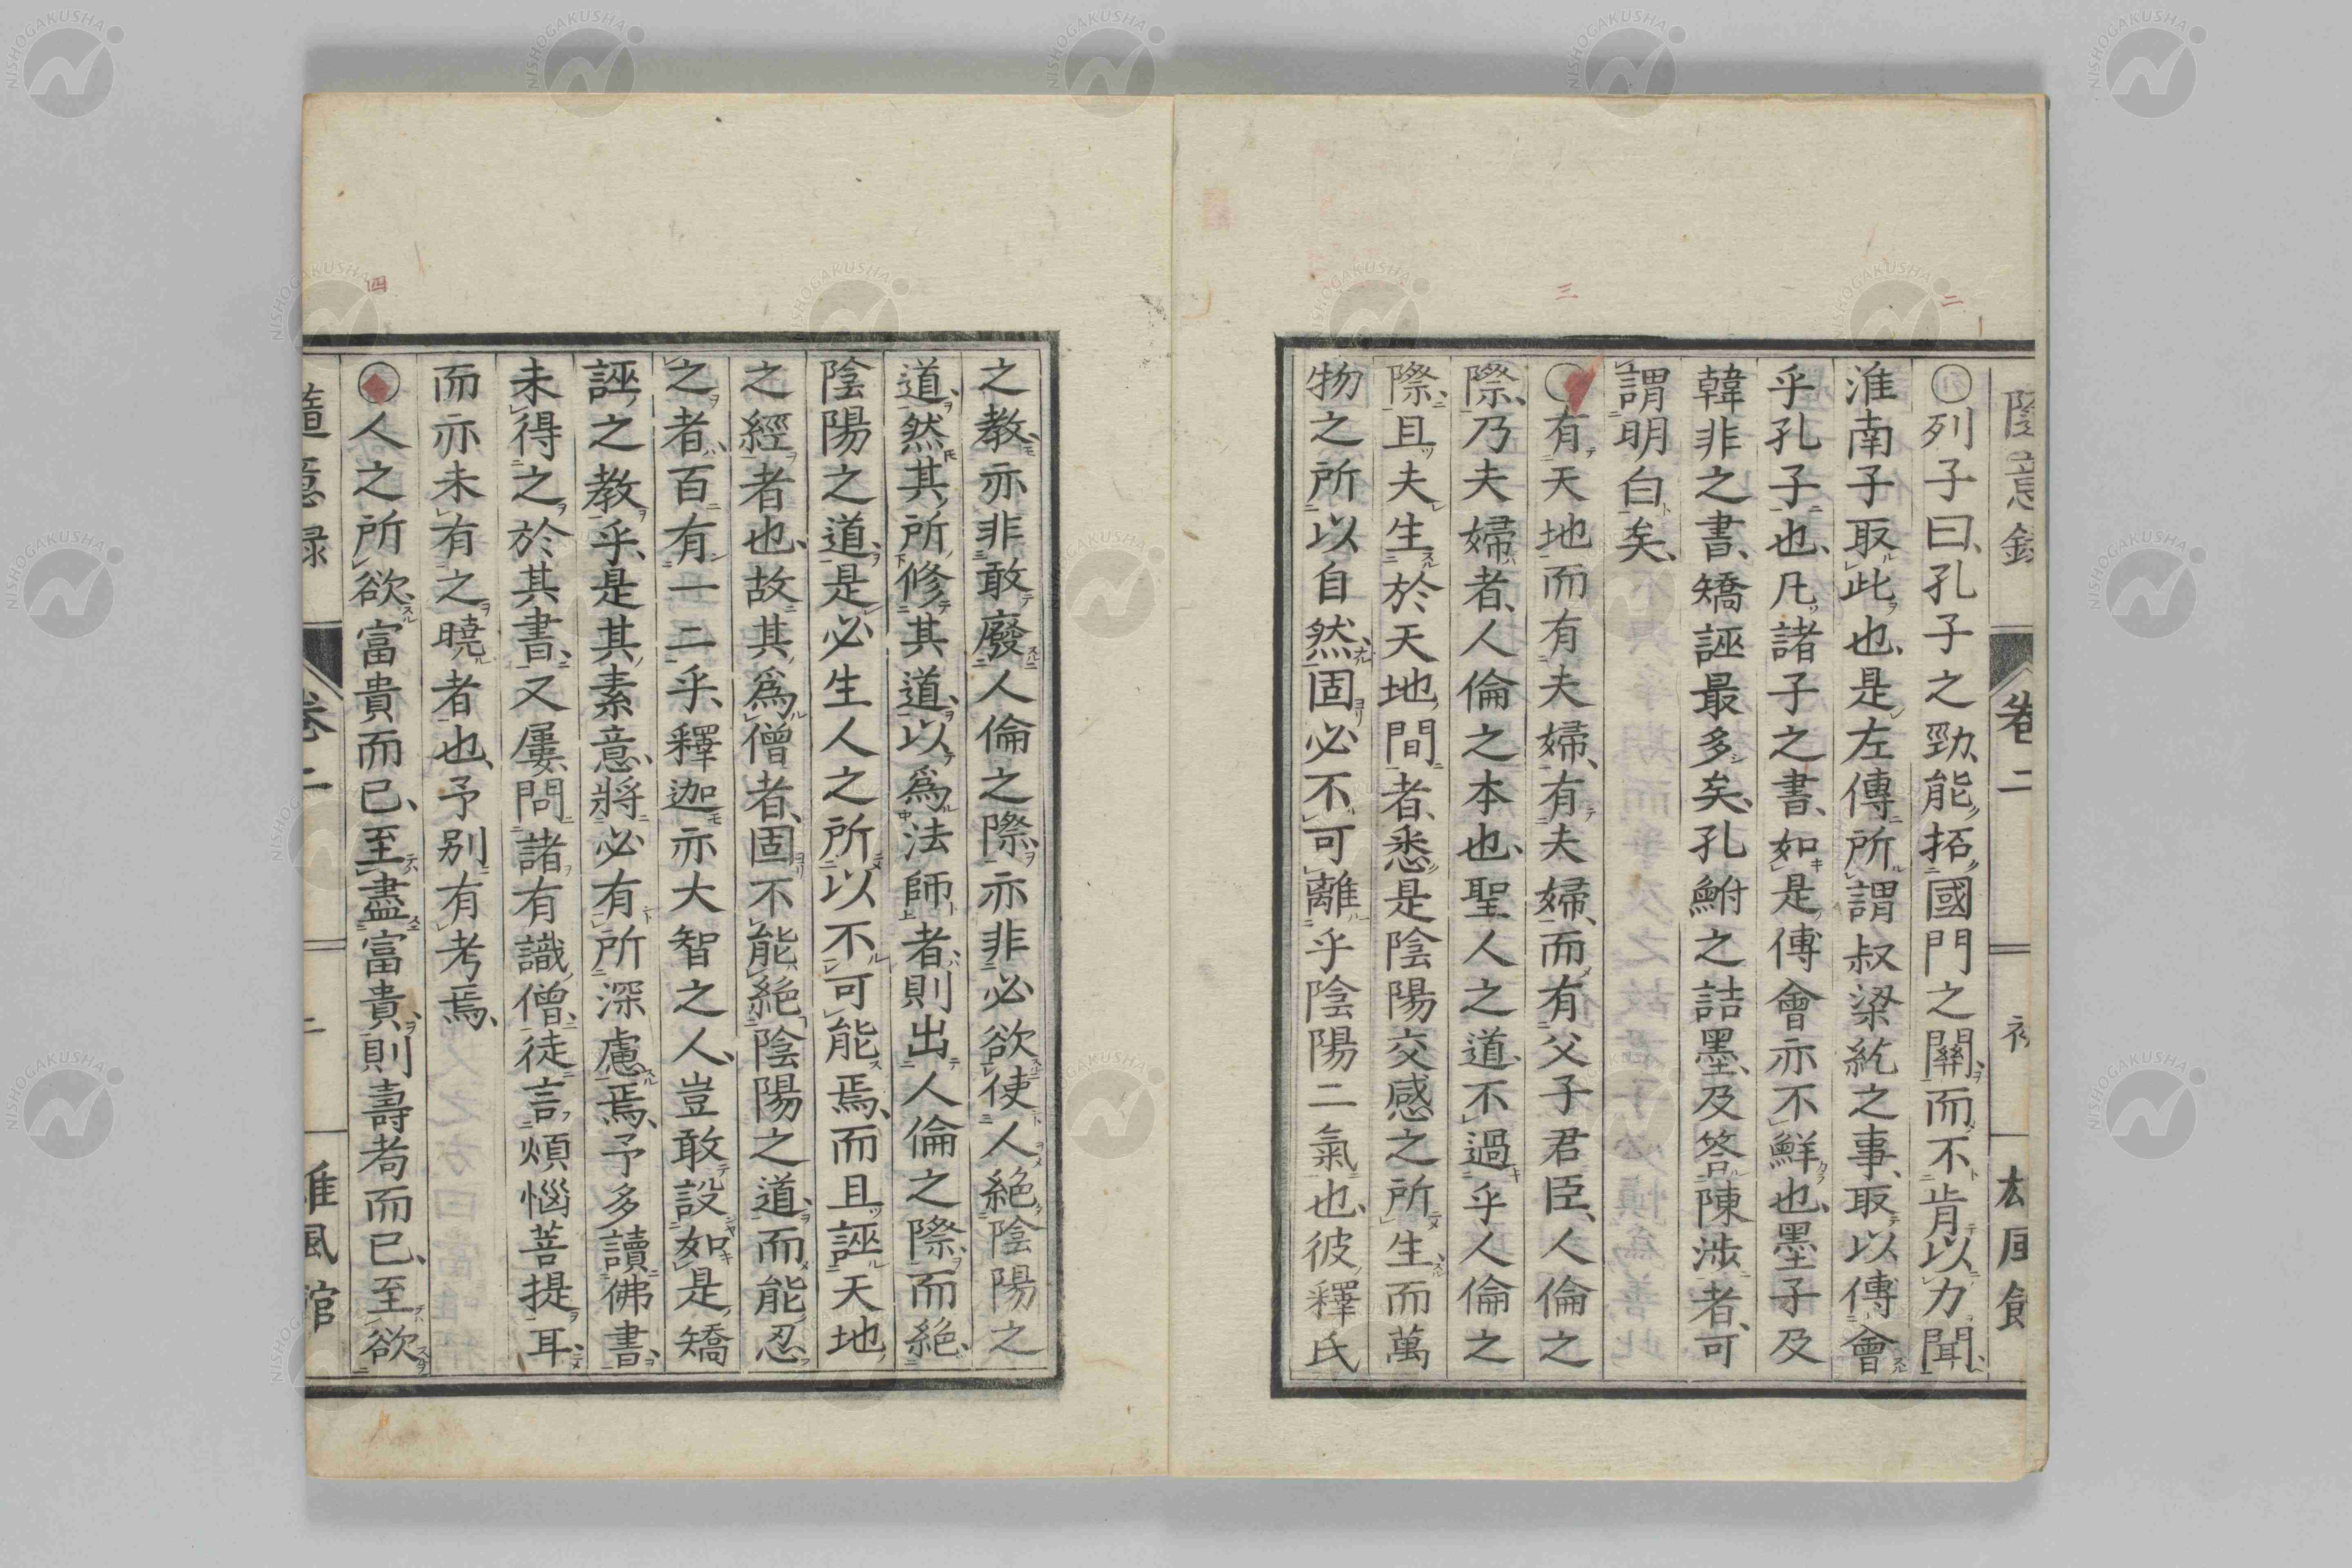 隨意録
卷二
二
〇列子曰、孔子之勁、能拓國門之關、而不肯以力聞、
淮南子取此也、是左傳所謂叔梁紇之事、取以傅會
乎孔子也、凡諸子之書、如是傅會亦不鮮也、墨子及
韓非之書、矯誣最多矣、孔鮒之詰墨、及答陳涉者、可
謂明白矣、
三
〇有天地而有夫婦、有夫婦、而有父子君臣、人倫之
際、乃夫婦者、人倫之本也、聖人之道、不過乎人倫之
際、且夫生於天地間者、悉是陰陽交感之所生、而萬
物之所以自然、固必不可離乎陰陽二氣也、彼釋氏
之教、亦非敢廢人倫之際、亦非必欲使人絶陰陽之
道、然其所修其道、以爲法師者、則出人倫之際、而絶
陰陽之道、是必生人之所以不可能焉、而且誣天地
之經者也、故其爲僧者、固不能絶陰陽之道、而能忍
之者、百有一二乎、釋迦亦大智之人、豈敢設如是矯
誣之教乎、是其素意、將必有所深慮焉、予多讀佛書、
未得之於其書、又屢問諸有識僧徒、言煩惱菩提耳、
而亦未有之曉者也、予別有考焉、
四
〇人之所欲、富貴而已、至盡富貴、則壽考而已、至欲
隨意録
卷二
二
雄風館
NISHOGAKUSHA